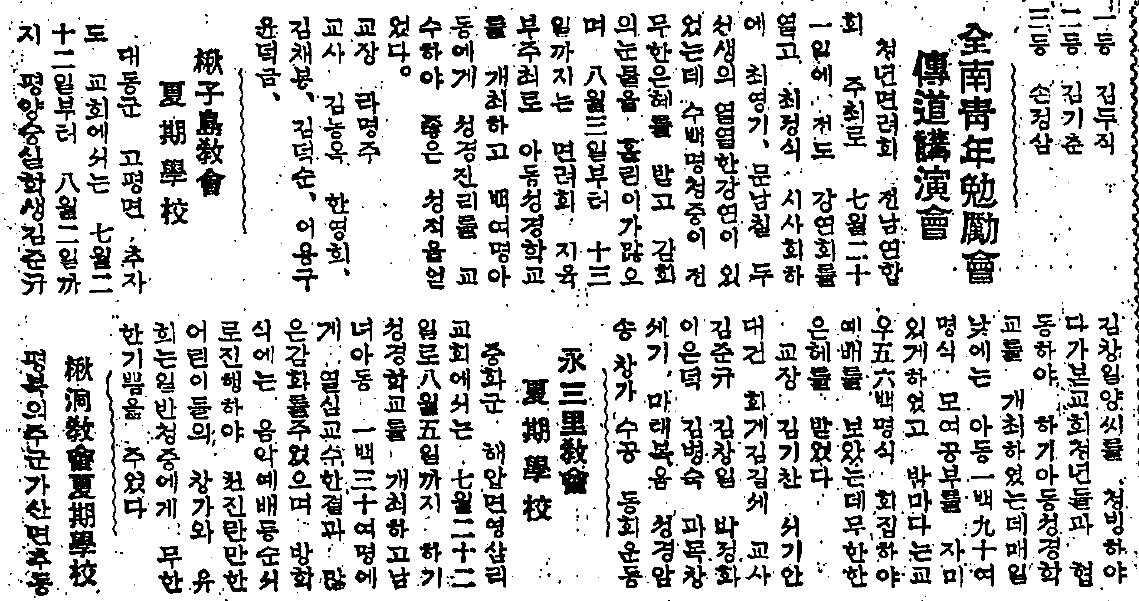 一等 김두직
二등 김기춘
三등 손정삼
全南靑年勉勵會
傳道講演會
청년면려회 전남연합
회 주최로 七월二十
一일에 전도 강연회를
열고 최정식 시사회하
에 최영기、문남칠 두
선생의 열렬한강연이 있
었는데 수백명청중이 전
무한은혜를 밧고 감회
의눈물을 흘린이가많으
며 八월三일부터 十三
일까지는 면려회 지육
부주최로 아동성경학교
를 개최하고 백여명아
동에게 성경진리를 교
수하야 좋은 성적을얻
었다。
교장 라명주
교사 김농옥 한영희、
김채봉、김덕순、이용구
윤덕금、
楸子島敎會
夏期學校
대동군 고평면 추자
도 교회에서는 七월二
十二일부터 八월二일까
지 평양숭실학생김준규
김창일양씨를 청빙하야
다가본교회청년들과 협
동하야 하기아동성경학
교를 개최하였는데매일
낮에는 아동一백九十여
명식 모여공부를 자미
있게하였고 밤마다는교
우五六백명식 회집하야
예배를 보았는데무한한
은혜를 받었다
교장 김기찬 서기안
대건 회게김길세 교사
김준규 김창일 박정화
이은덕 김병숙 과목창
세기、마래복음 성경암
송 창가 수공 동화운동
永三里敎會
夏期學校
중화군 해압면영삼리
교회에서는 七월二十二
일로八월五일까지 하기
성경학교를 개최하고남
녀아동 一백三十여명에
게 열심교수한결과 많
은감화를주었으며 방학
식에는 음악예배등순서
로진행하야 천진란만한
어린이들의 창가와 유
희는일반청중에게 무한
한기쁨을 주었다
楸洞敎會夏期學校
평북의주군가산면추동